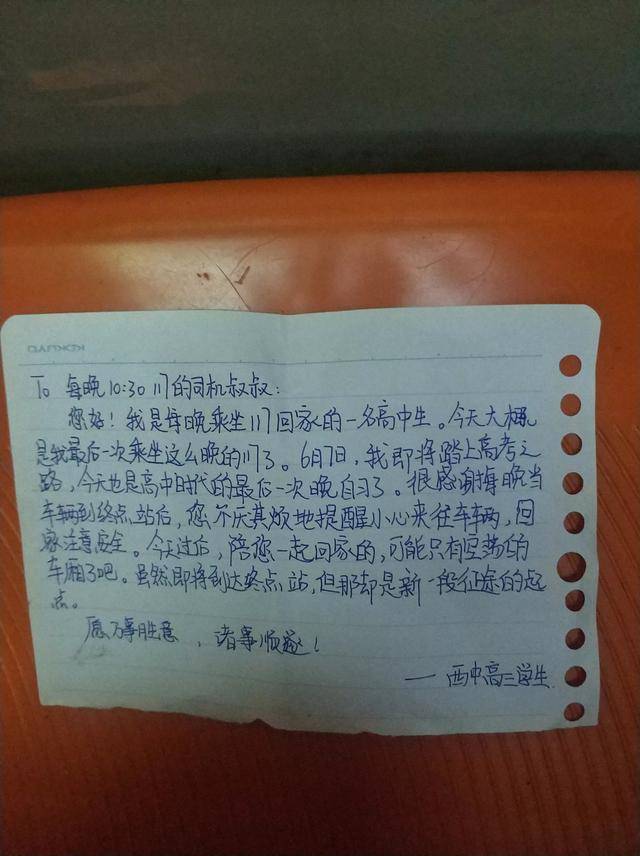 To 每晚10:30 11的司机叔叔:
您好!我是每晚乘坐11回家的一名高中生。今天大概
是我最后一次乘坐这么晚的11了。6月7日,我即将踏上高考之
路,今天也是高中时代的最后一次晚自习了。很感谢每晚当
车辆到终点站后,您不厌其烦地提醒小心来往车辆,回
家注意安全。今天过后,陪您一起回家的,可能只有空荡的
车厢了吧。虽然即将到达终点站,但那却是新一段征途的起
点。
愿万事胜意,诸事顺遂!
——西中高三学生.